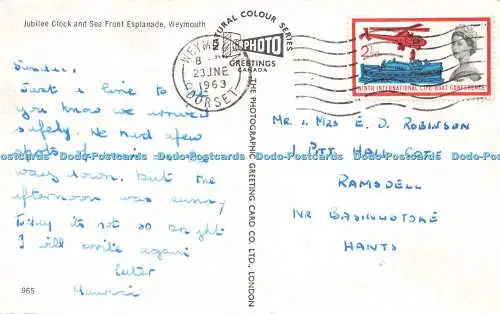 Jubilee Clock and Sea Front Esplanade, Weymouth
Sunday.
Just a line to let
you know we arrived
safely. We had afew
spots of rain
way down. But the
afternoon was sunny
Today its not so bright
I will write again
later
965
NATURAL COLOUR SERIES
PHOTO
GREETINGS
CANADA
THE PHOTOGRAPHIC GREETING CARD CO. LTD., LONDON
WEYM
8
23 JNE
1963
DORSET
2½
NINTH INTERNATIONAL LIFE-BOAT CONFERENCE
Mr. & Mrs E. D. Robinson
1 Pitt Hall Cotts
Ramsdell
Nr Basingstoke
Hants
Dodo-Postcards Dodo-Postcards Dodo-Postcards Dodo-Postcards